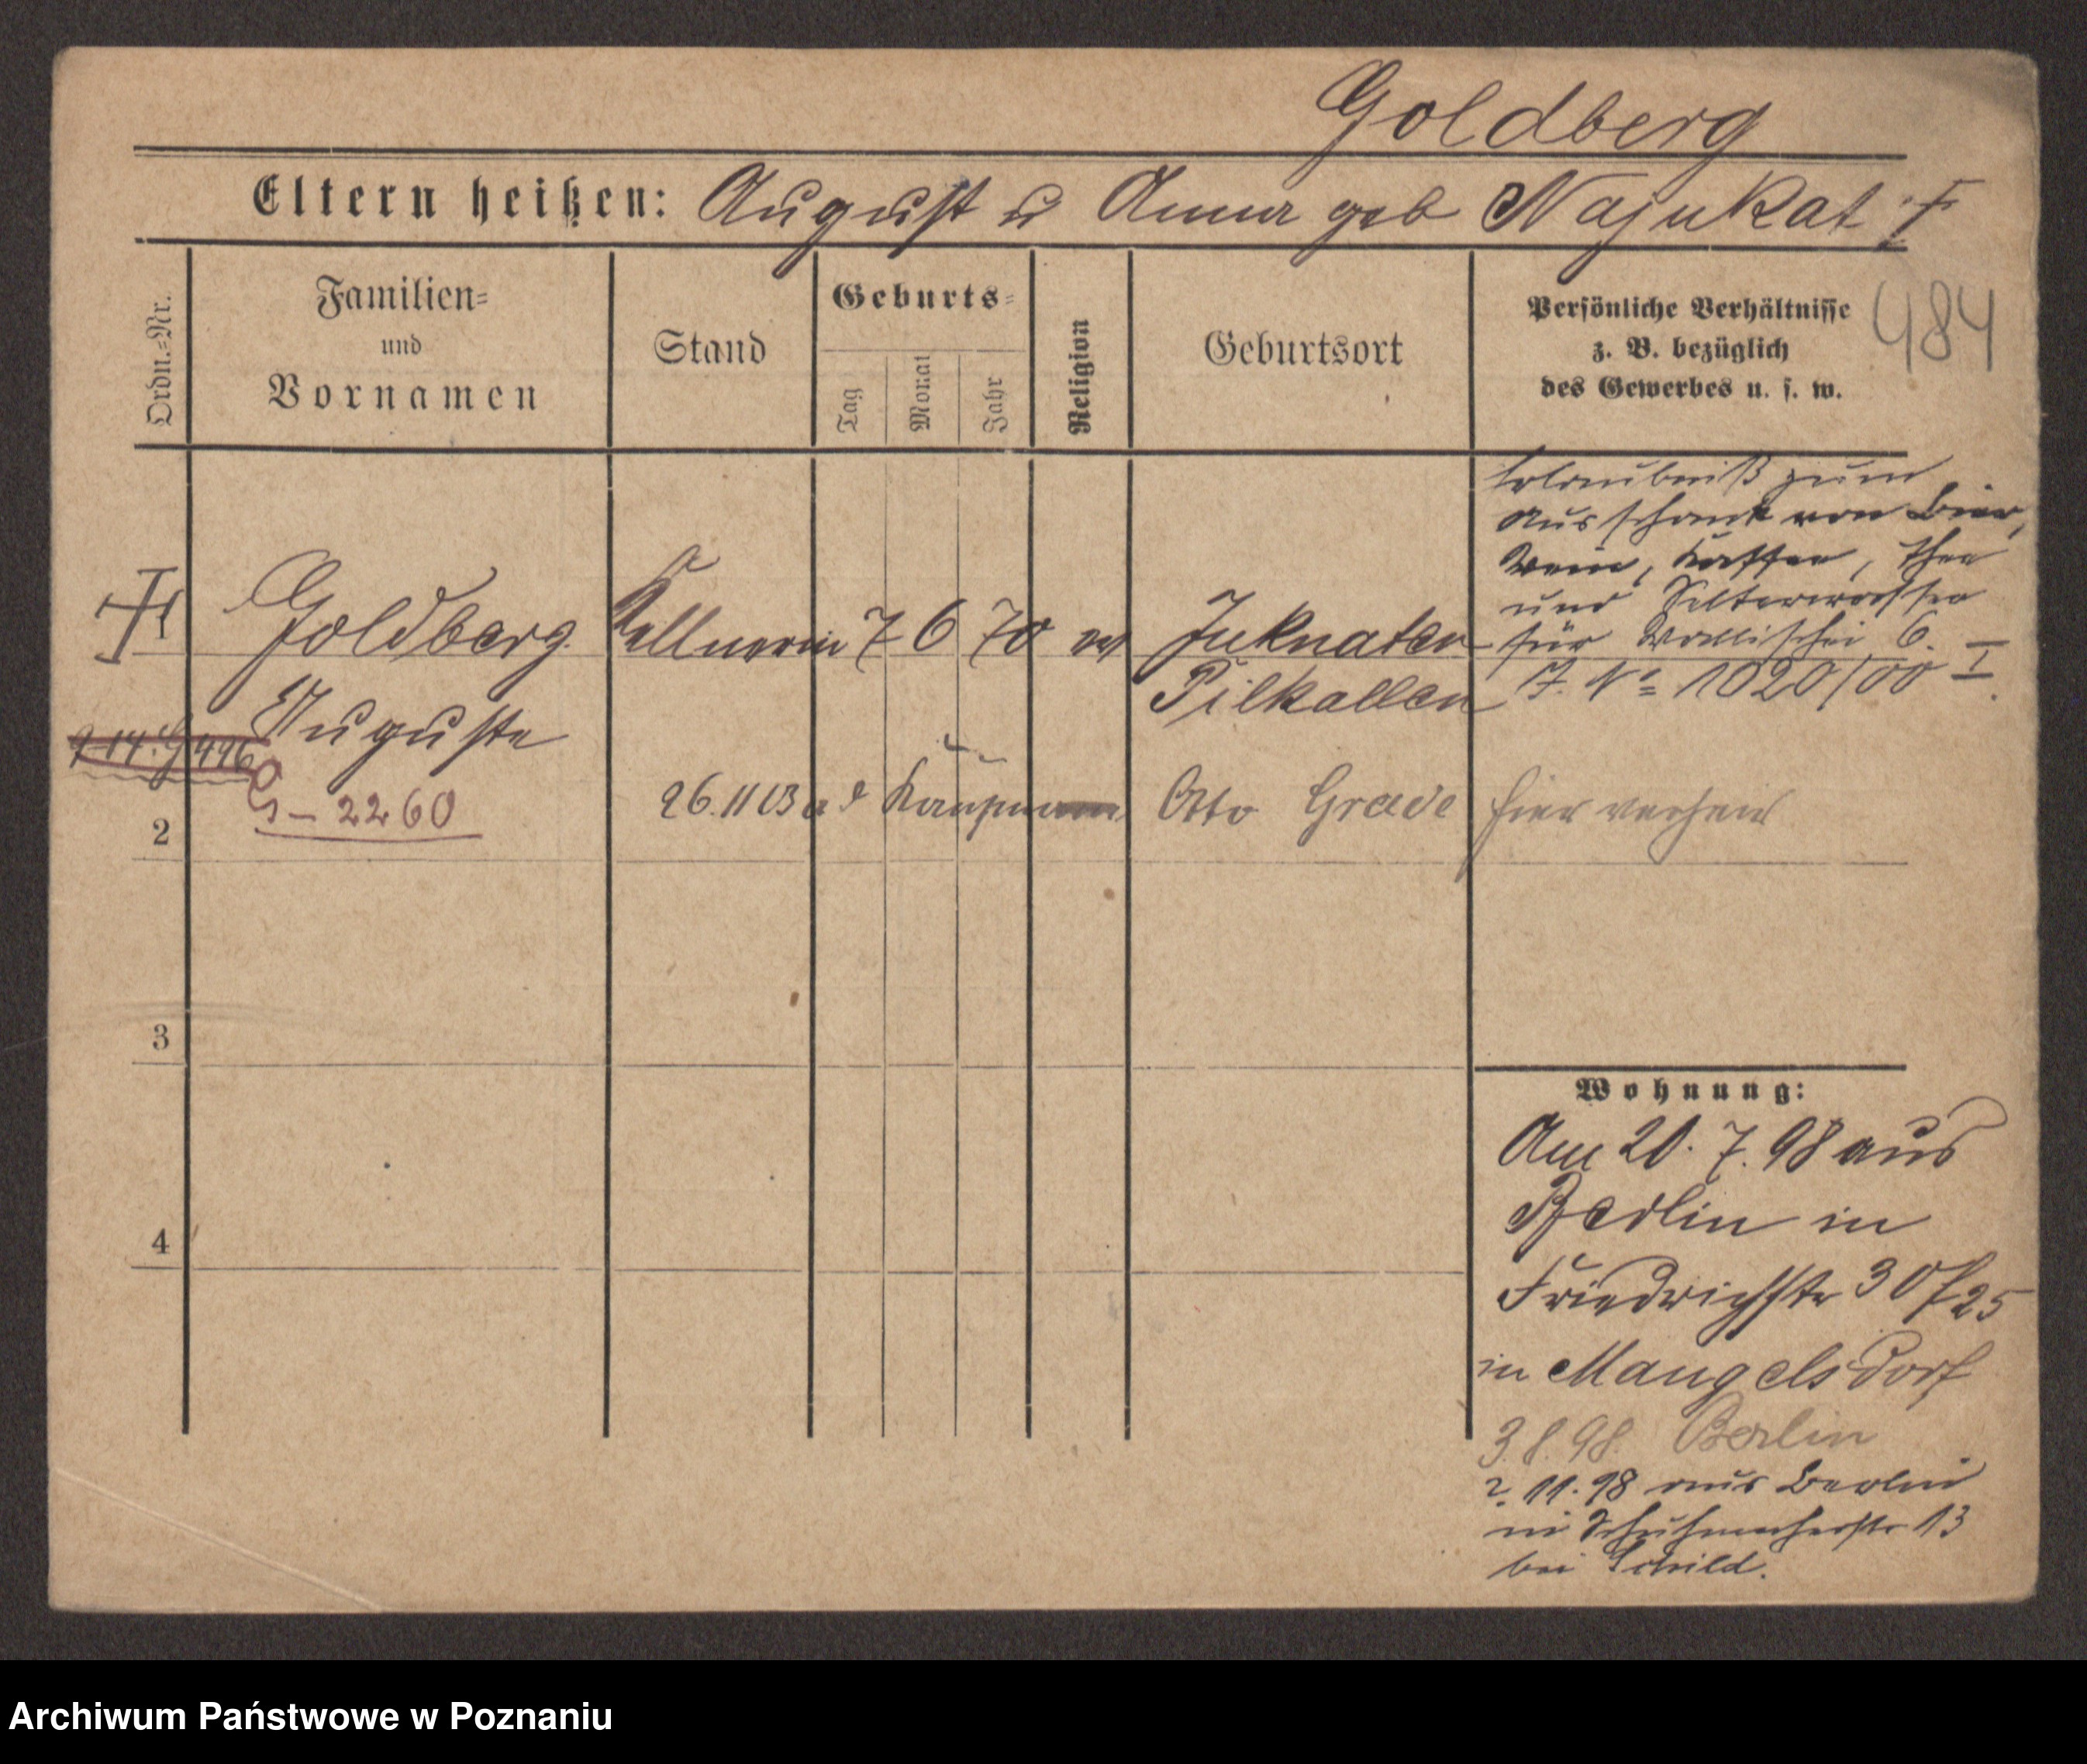 Goldberg
Eltern heißen: August u Anna geb Najukat
Ordn.=Nr.
Familien=
und
Vornamen
Stand
Geburts=
Tag
Monat
Jahr
Religion
Geburtsort
Persönliche Verhältnisse
z. B. bezüglich
des Gewerbes u. s. w.
484
Erlaubniß zum
Ausschank von Bier,
Wein, Kaffee, Thee
und Selterwasser
für Wallischei 6.
J. No 1020/00 I
1
Goldberg
Auguste
Kellnerin
7 6 70 ev
Juknaten
Pillkallen
G 496
G - 2260
26.11 03 a d Kaufmann Otto Grade hier verheir
2
3
4
Wohnung:
Am 20. 7. 98 aus
Berlin in
Friedrichstr 30/25
in Mangelsdorf
3.8.98 Berlin
2. 11. 98 aus Berlin
in Schuhmacherstr 13
bei Schild.
Archiwum Państwowe w Poznaniu